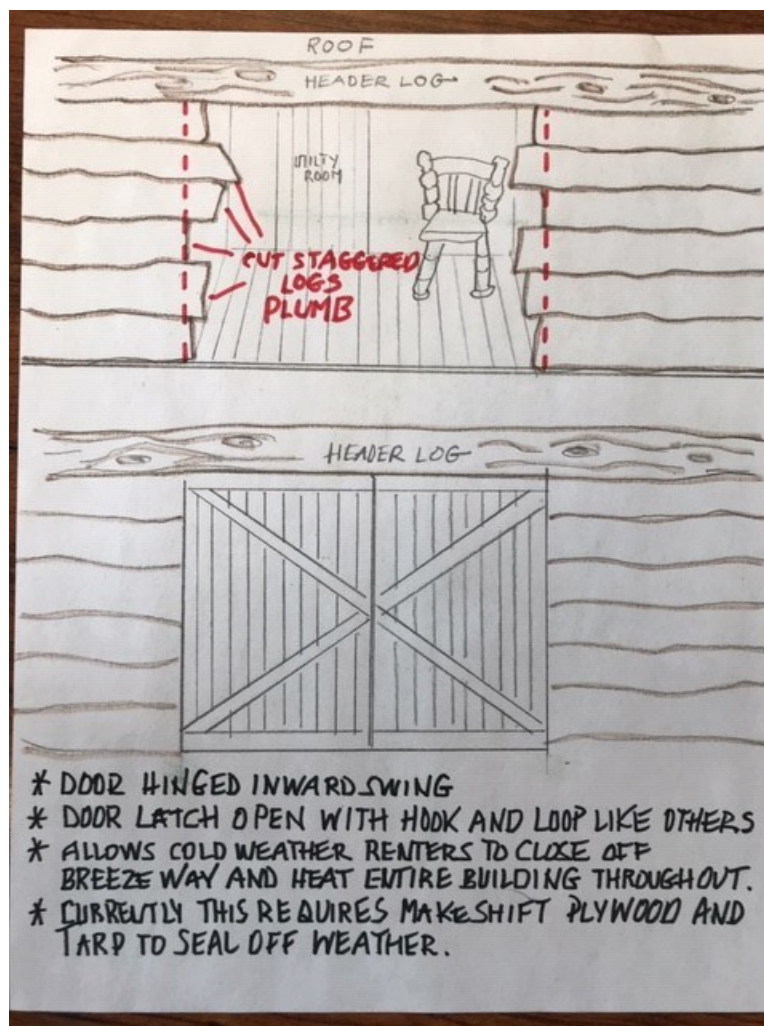 ROOF
HEADER LOG
UTILTY
ROOM
CUT STAGGERED
LOGS
PLUMB
HEADER LOG
* DOOR HINGED INWARD SWING
* DOOR LATCH OPEN WITH HOOK AND LOOP LIKE OTHERS
* ALLOWS COLD WEATHER RENTERS TO CLOSE OFF
BREEZE WAY AND HEAT ENTIRE BUILDING THROUGHOUT.
* CURRENTLY THIS REQUIRES MAKESHIFT PLYWOOD AND
TARP TO SEAL OFF WEATHER.